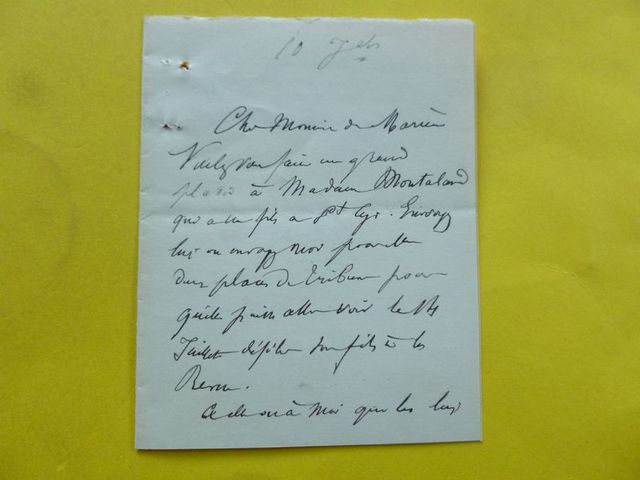 10 
Cher Monsieur de Marcère
Voulez vous faire un grand
plaisir à Madame Montaland
qui a un fils a St Cyr. Envoyez
lui ou envoyez moi pour elle
deux places de tribune pour
qu'elle puisse aller voir le 14
Juillet défiler son fils à la
Revue.
à moi que les lui